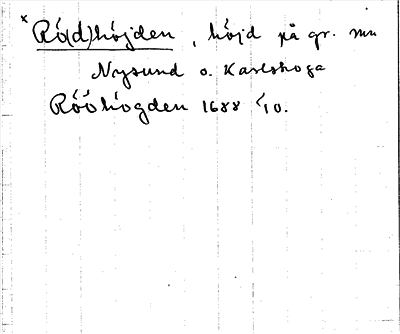 x Rö(d)höjden, höjd på gr. mn
Nysund o. Karlskoga
Röõhögden 1688 5/10.